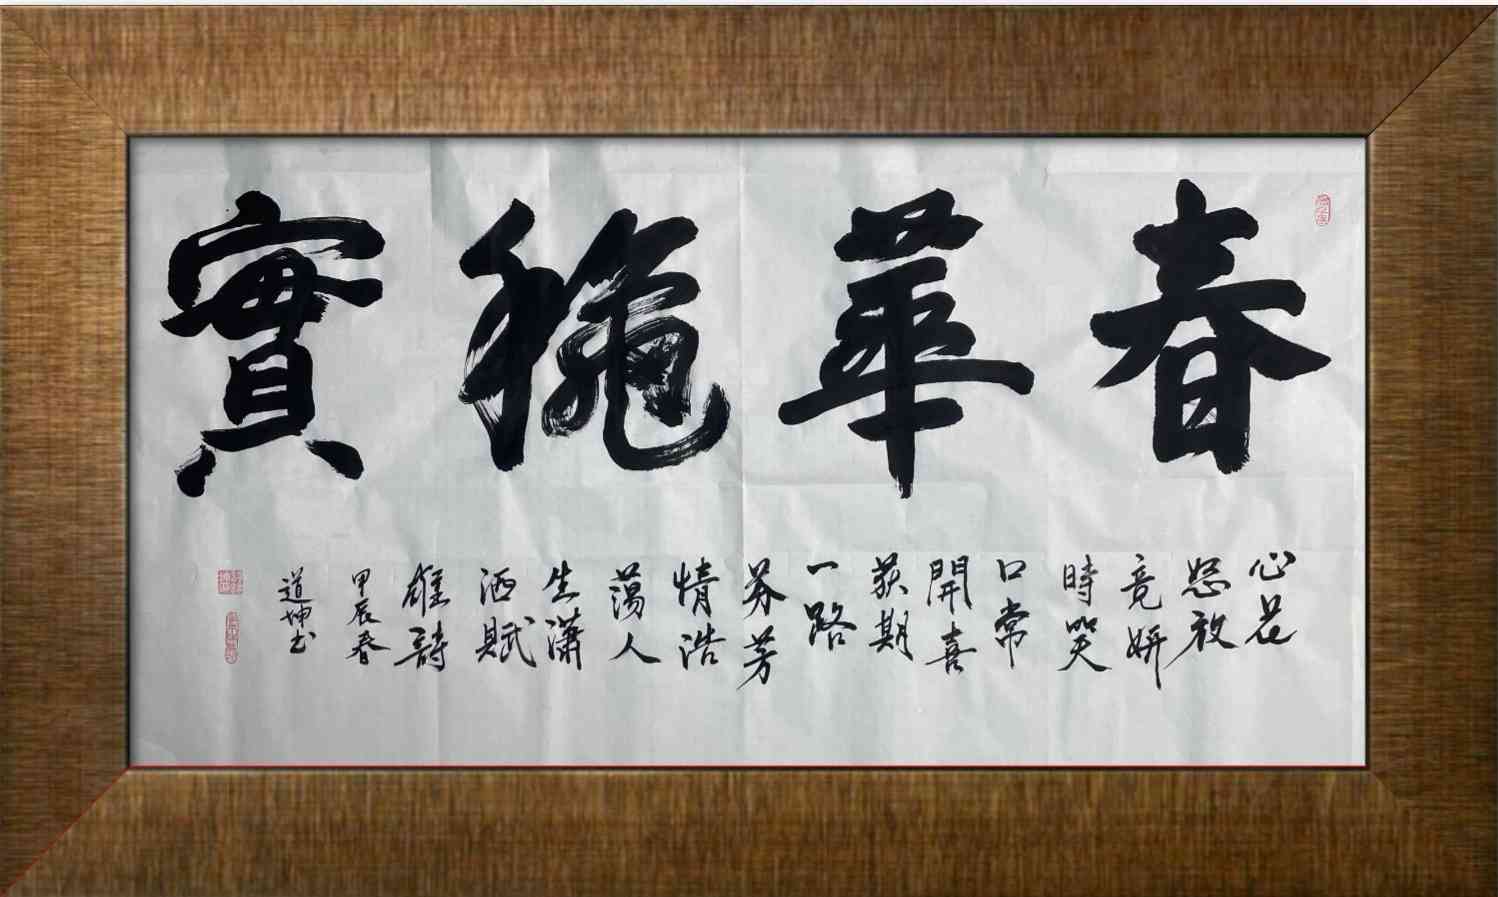 春華穐實
心花
怒放
竟妍
時笑
口常
開喜
获期
一路
芬芳
情浩
蕩人
生潇
洒賦
雄詩
甲辰春
道坤书